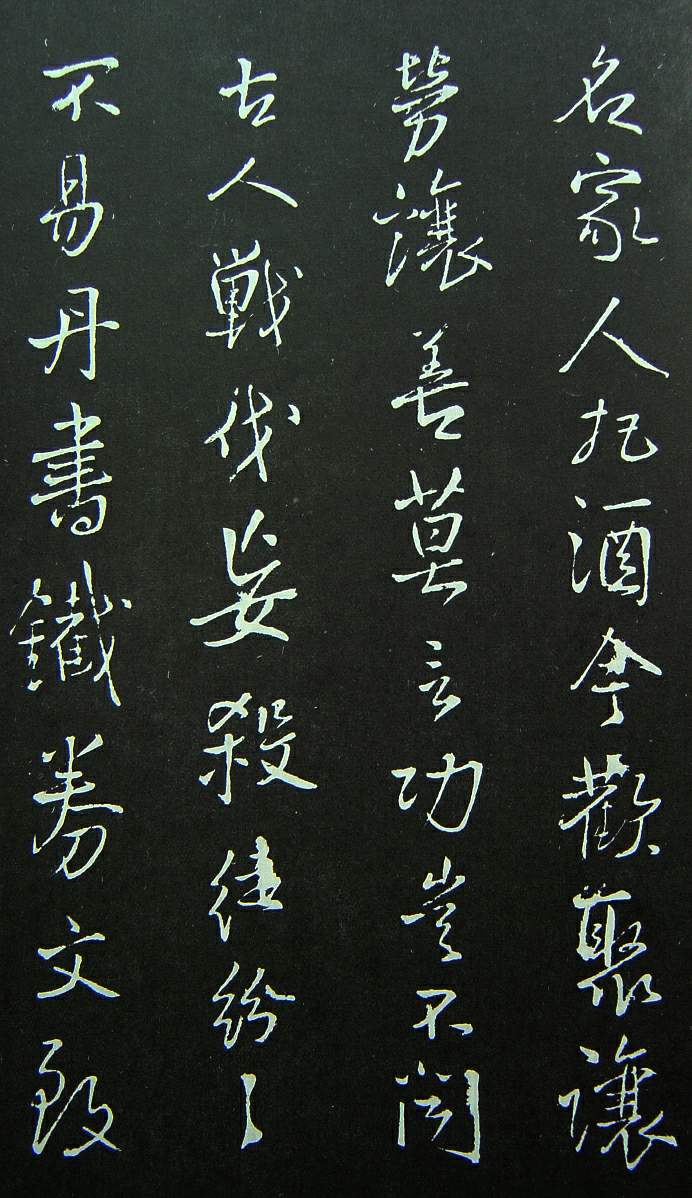 名家人把酒今歡聚讓
勞讓善莫言功豈不聞
古人戰伐妄殺徒紛〻
不易丹書鐵券文